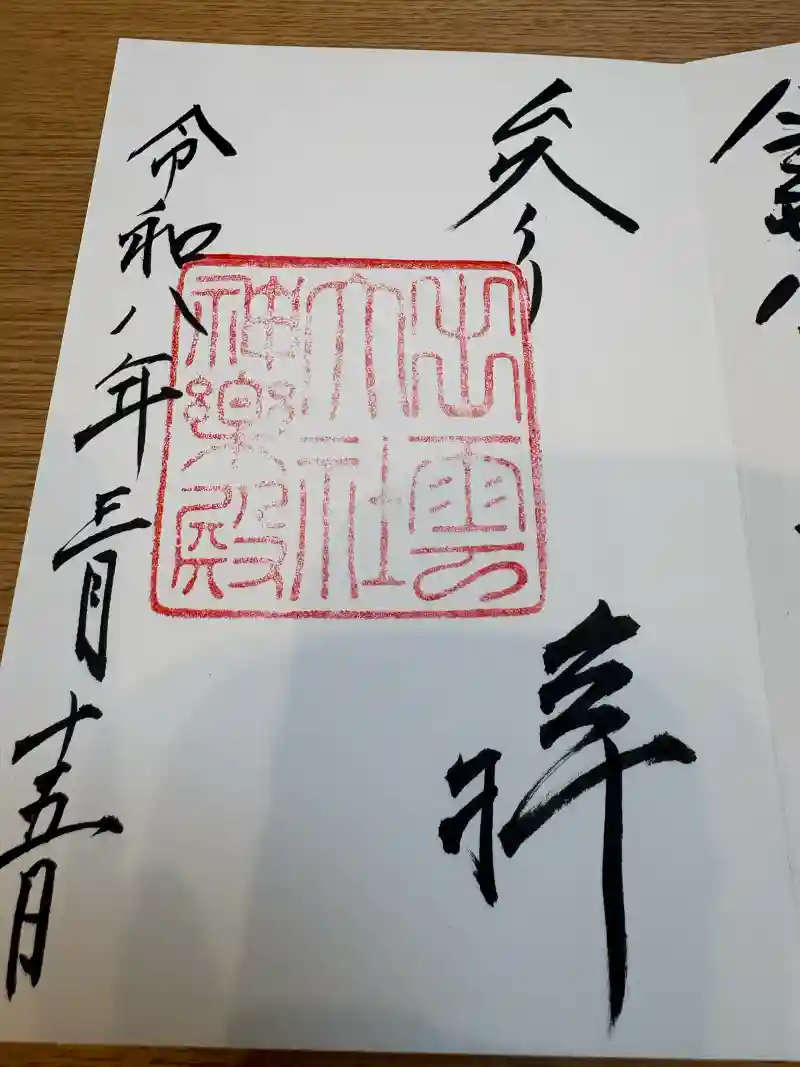 参拝
出雲
大社
神樂殿
令和八年三月十五日